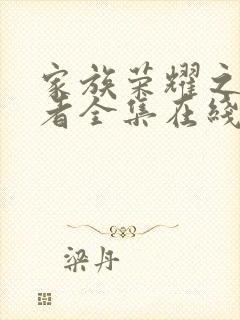 家族荣耀之
者全集在线
梁丹